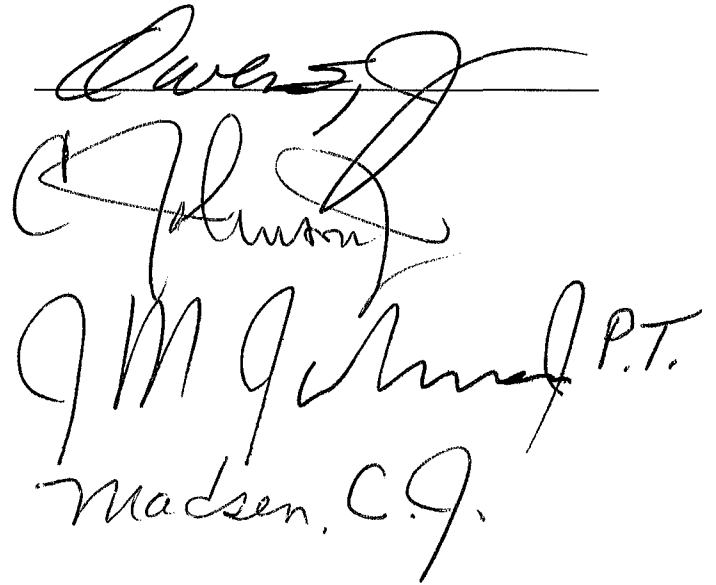 Owens, J
C Johnson J
J M Johnson J P.T.
Madsen, C.J.